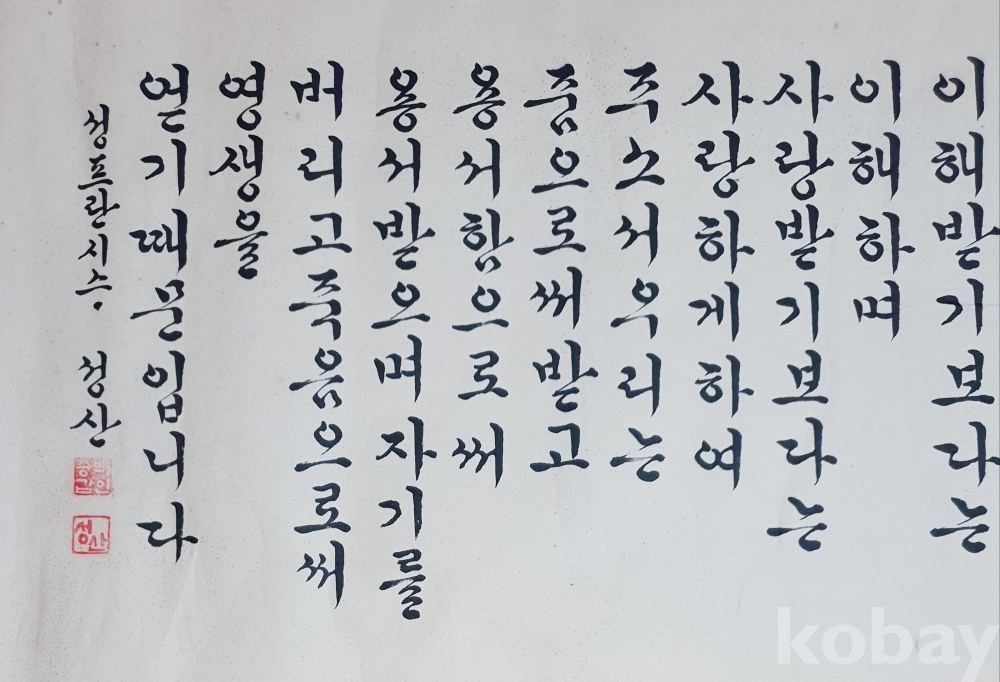 이해받기보다는
이해하며
사랑받기보다는
사랑하게하여
주소서우리는
줌으로써받고
용서함으로써
용서받으며자기를
버리고죽음으로써
영생을
얻기때문입니다
성프란시스. 성산
성산
kobay